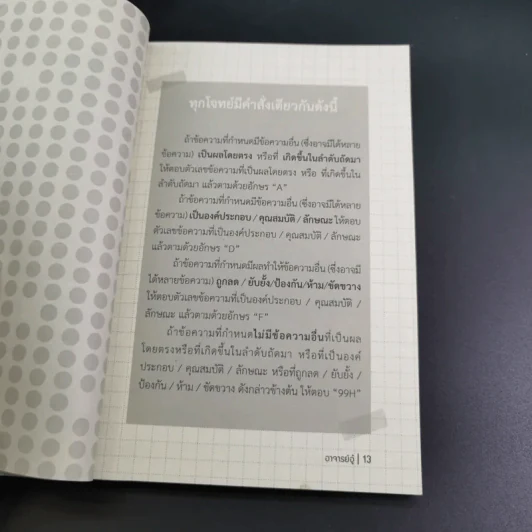 ทุกโจทย์มีคำสั่งเดียวกันดังนี้
ถ้าข้อความที่กำหนดมีข้อความอื่น (ซึ่งอาจมีได้หลาย
ข้อความ) เป็นผลโดยตรง หรือที่ เกิดขึ้นในลำดับถัดมา
ให้ตอบตัวเลขข้อความที่เป็นผลโดยตรง หรือ ที่เกิดขึ้นใน
ลำดับถัดมา แล้วตามด้วยอักษร "A"
ถ้าข้อความที่กำหนดมีข้อความอื่น (ซึ่งอาจมีได้หลาย
ข้อความ) เป็นองค์ประกอบ / คุณสมบัติ / ลักษณะ ให้ตอบ
ตัวเลขข้อความที่เป็นองค์ประกอบ / คุณสมบัติ / ลักษณะ
แล้วตามด้วยอักษร "D"
ถ้าข้อความที่กำหนดมีผลทำให้ข้อความอื่น (ซึ่งอาจมี
ได้หลายข้อความ) ถูกลด / ยับยั้ง/ป้องกัน/ห้าม/ขัดขวาง
ให้ตอบตัวเลขข้อความที่เป็นองค์ประกอบ / คุณสมบัติ /
ลักษณะ แล้วตามด้วยอักษร "F"
ถ้าข้อความที่กำหนดไม่มีข้อความอื่นที่เป็นผล
โดยตรงหรือที่เกิดขึ้นในลำดับถัดมา หรือที่เป็นองค์
ประกอบ / คุณสมบัติ / ลักษณะ หรือที่ถูกลด / ยับยั้ง /
ป้องกัน / ห้าม / ขัดขวาง ดังกล่าวข้างต้น ให้ตอบ "99H"
อาจารย์อู๋ | 13